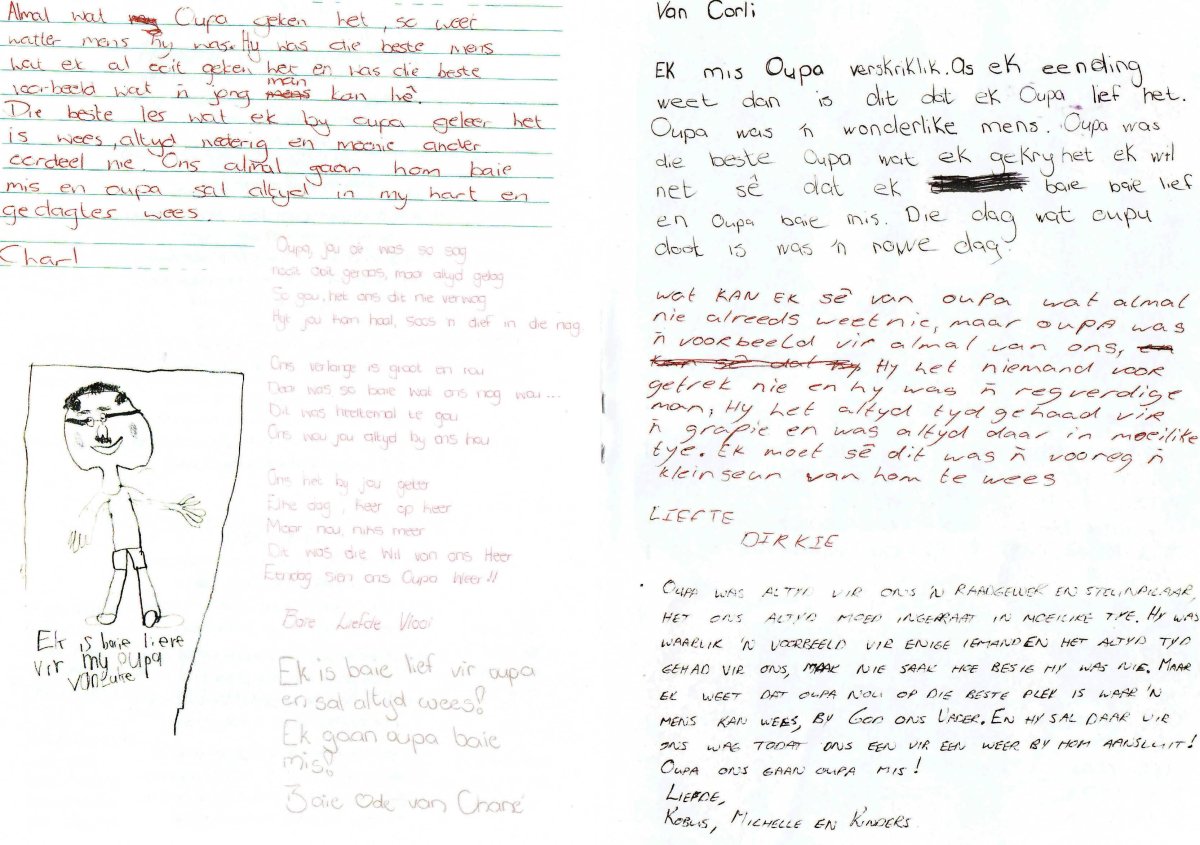 Almal wat Oupa geken het, so weet
watter mens hy was. Hy was die beste mens
wat ek al ooit geken het en was die beste
voorbeeld wat 'n jong man kan hê.
Die beste les wat ek by oupa geleer het
is wees altyd nederig en moenie ander
oordeel nie. Ons almal gaan hom baie
mis en oupa sal altyd in my hart en
gedagtes wees.
Charl
Oupa, jou oë was so sag
nooit ooit geraas, maar altyd gelag
So gou, het ons dit nie verwag
Hy jou kom haal, soos 'n dief in die nag
Ons verlange is groot en rou
Daar was so baie wat ons nog wou...
Dit was heeltemal te gou
Ons wou jou altyd by ons hou
Ons het by jou geleer
Elke dag, keer op keer
Maar nou, niks meer
Dit was die Wil van ons Heer
Eendag sien ons Oupa Weer!!
Baie Liefde Vlooi
Ek is baie liere
vir my oupa
van
Ek is baie lief vir oupa
en sal altyd wees!
Ek gaan oupa baie
mis!
Baie ♡de van Chané
Van Corli
EK mis Oupa verskriklik. As ek eending
weet dan is dit dat ek Oupa lief het.
Oupa was 'n wonderlike mens. Oupa was
die beste Oupa wat ek gekry het ek wil
net sê dat ek baie baie lief
en Oupa baie mis. Die dag wat oupa
doot is was 'n rowwe dag.
wat KAN EK sê van oupa wat almal
nie alreeds weet nie, maar oupa was
'n voorbeeld vir almal van ons, en
kan sê dat hy Hy het niemand voor
getrek nie en hy was 'n regverdige
man, Hy het altyd tyd gehaad vir
'n grapie en was altyd daar in moeilike
tye. Ek moet sê dit was 'n vooreg 'n
kleinseun van hom te wees
LIEFTE
DIRKIE
OUPA WAS ALTYD VIR ONS 'N RAADGEWER EN STEUNPILAAR,
HET ONS ALTYD MOED INGEPRAAT IN MOEILIKE TYE. HY WAS
WAARLIK 'N VOORBEELD VIR ENIGE IEMAND EN HET ALTYD TYD
GEHAD VIR ONS, MAAK NIE SAAK HOE BESIG HY WAS NIE. MAAR
EK WEET DAT OUPA NOU OP DIE BESTE PLEK IS WAAR 'N
MENS KAN WEES, BY GOD ONS VADER. EN HY SAL DAAR VIR
ONS WAG TODAT ONS EEN VIR EEN WEER BY HOM AANSLUIT!
OUPA ONS GAAN OUPA MIS!
LIEFDE,
KOBUS, MICHELLE EN KINDERS